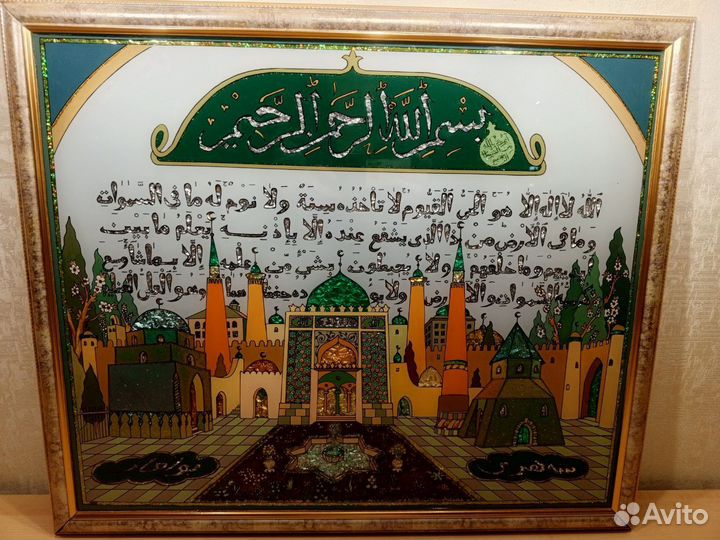 بسم الله الرحمن الرحيم
الله لا اله الا هو الحي القيوم لا تاخذه سنة ولا نوم له ما في السموات
وما في الارض من ذا الذي يشفع عنده الا باذنه يعلم ما بين
يديهم وما خلفهم ولا يحيطون بشيء من علمه الا بما شاء وسع
السموات والارض ولا يوده حفظهما وهو العلي
Avito